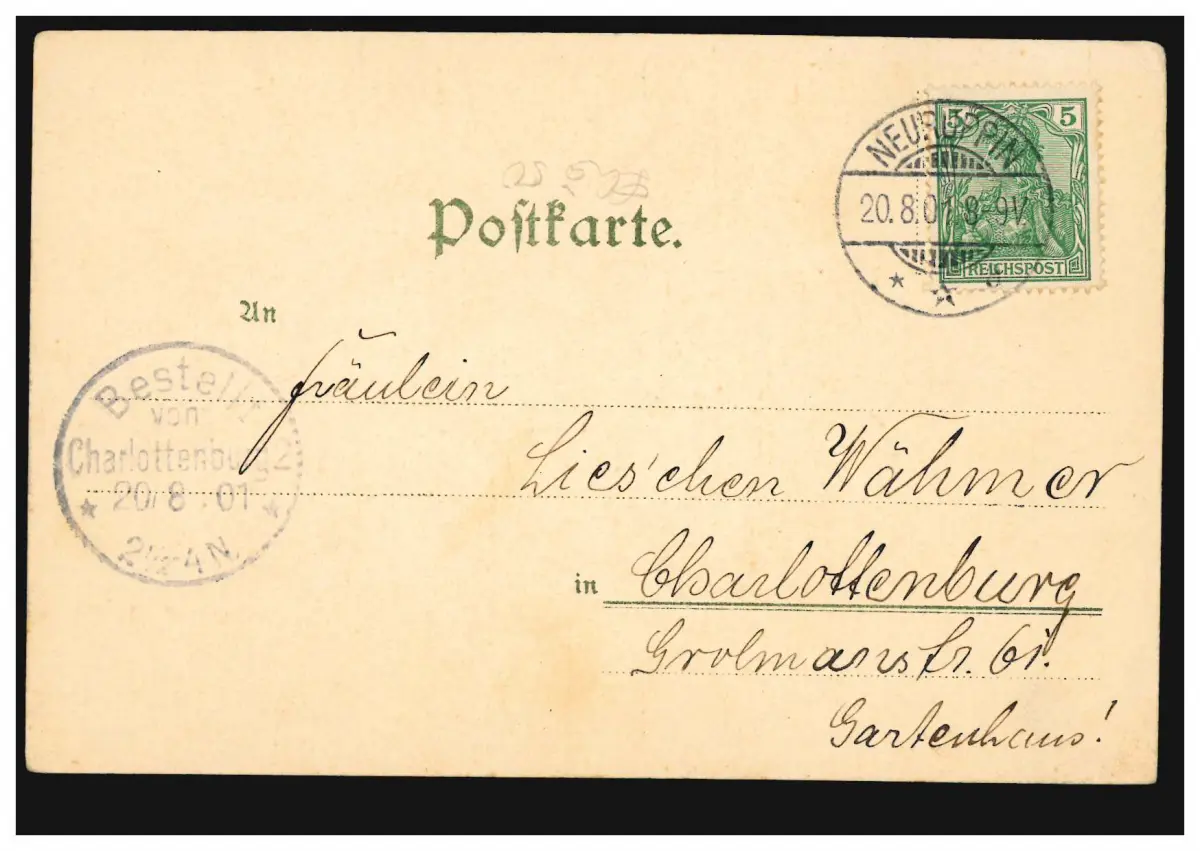 5 5
NEURUPPIN
20.8.01.8-9V
REICHSPOST
Postkarte.
An
Bestellt
von
Charlottenburg 2
20/8.01
2½-4N.
Fräulein
Lies'chen Wähmer
in Charlottenburg
Grolmanstr. 61.
Gartenhaus!